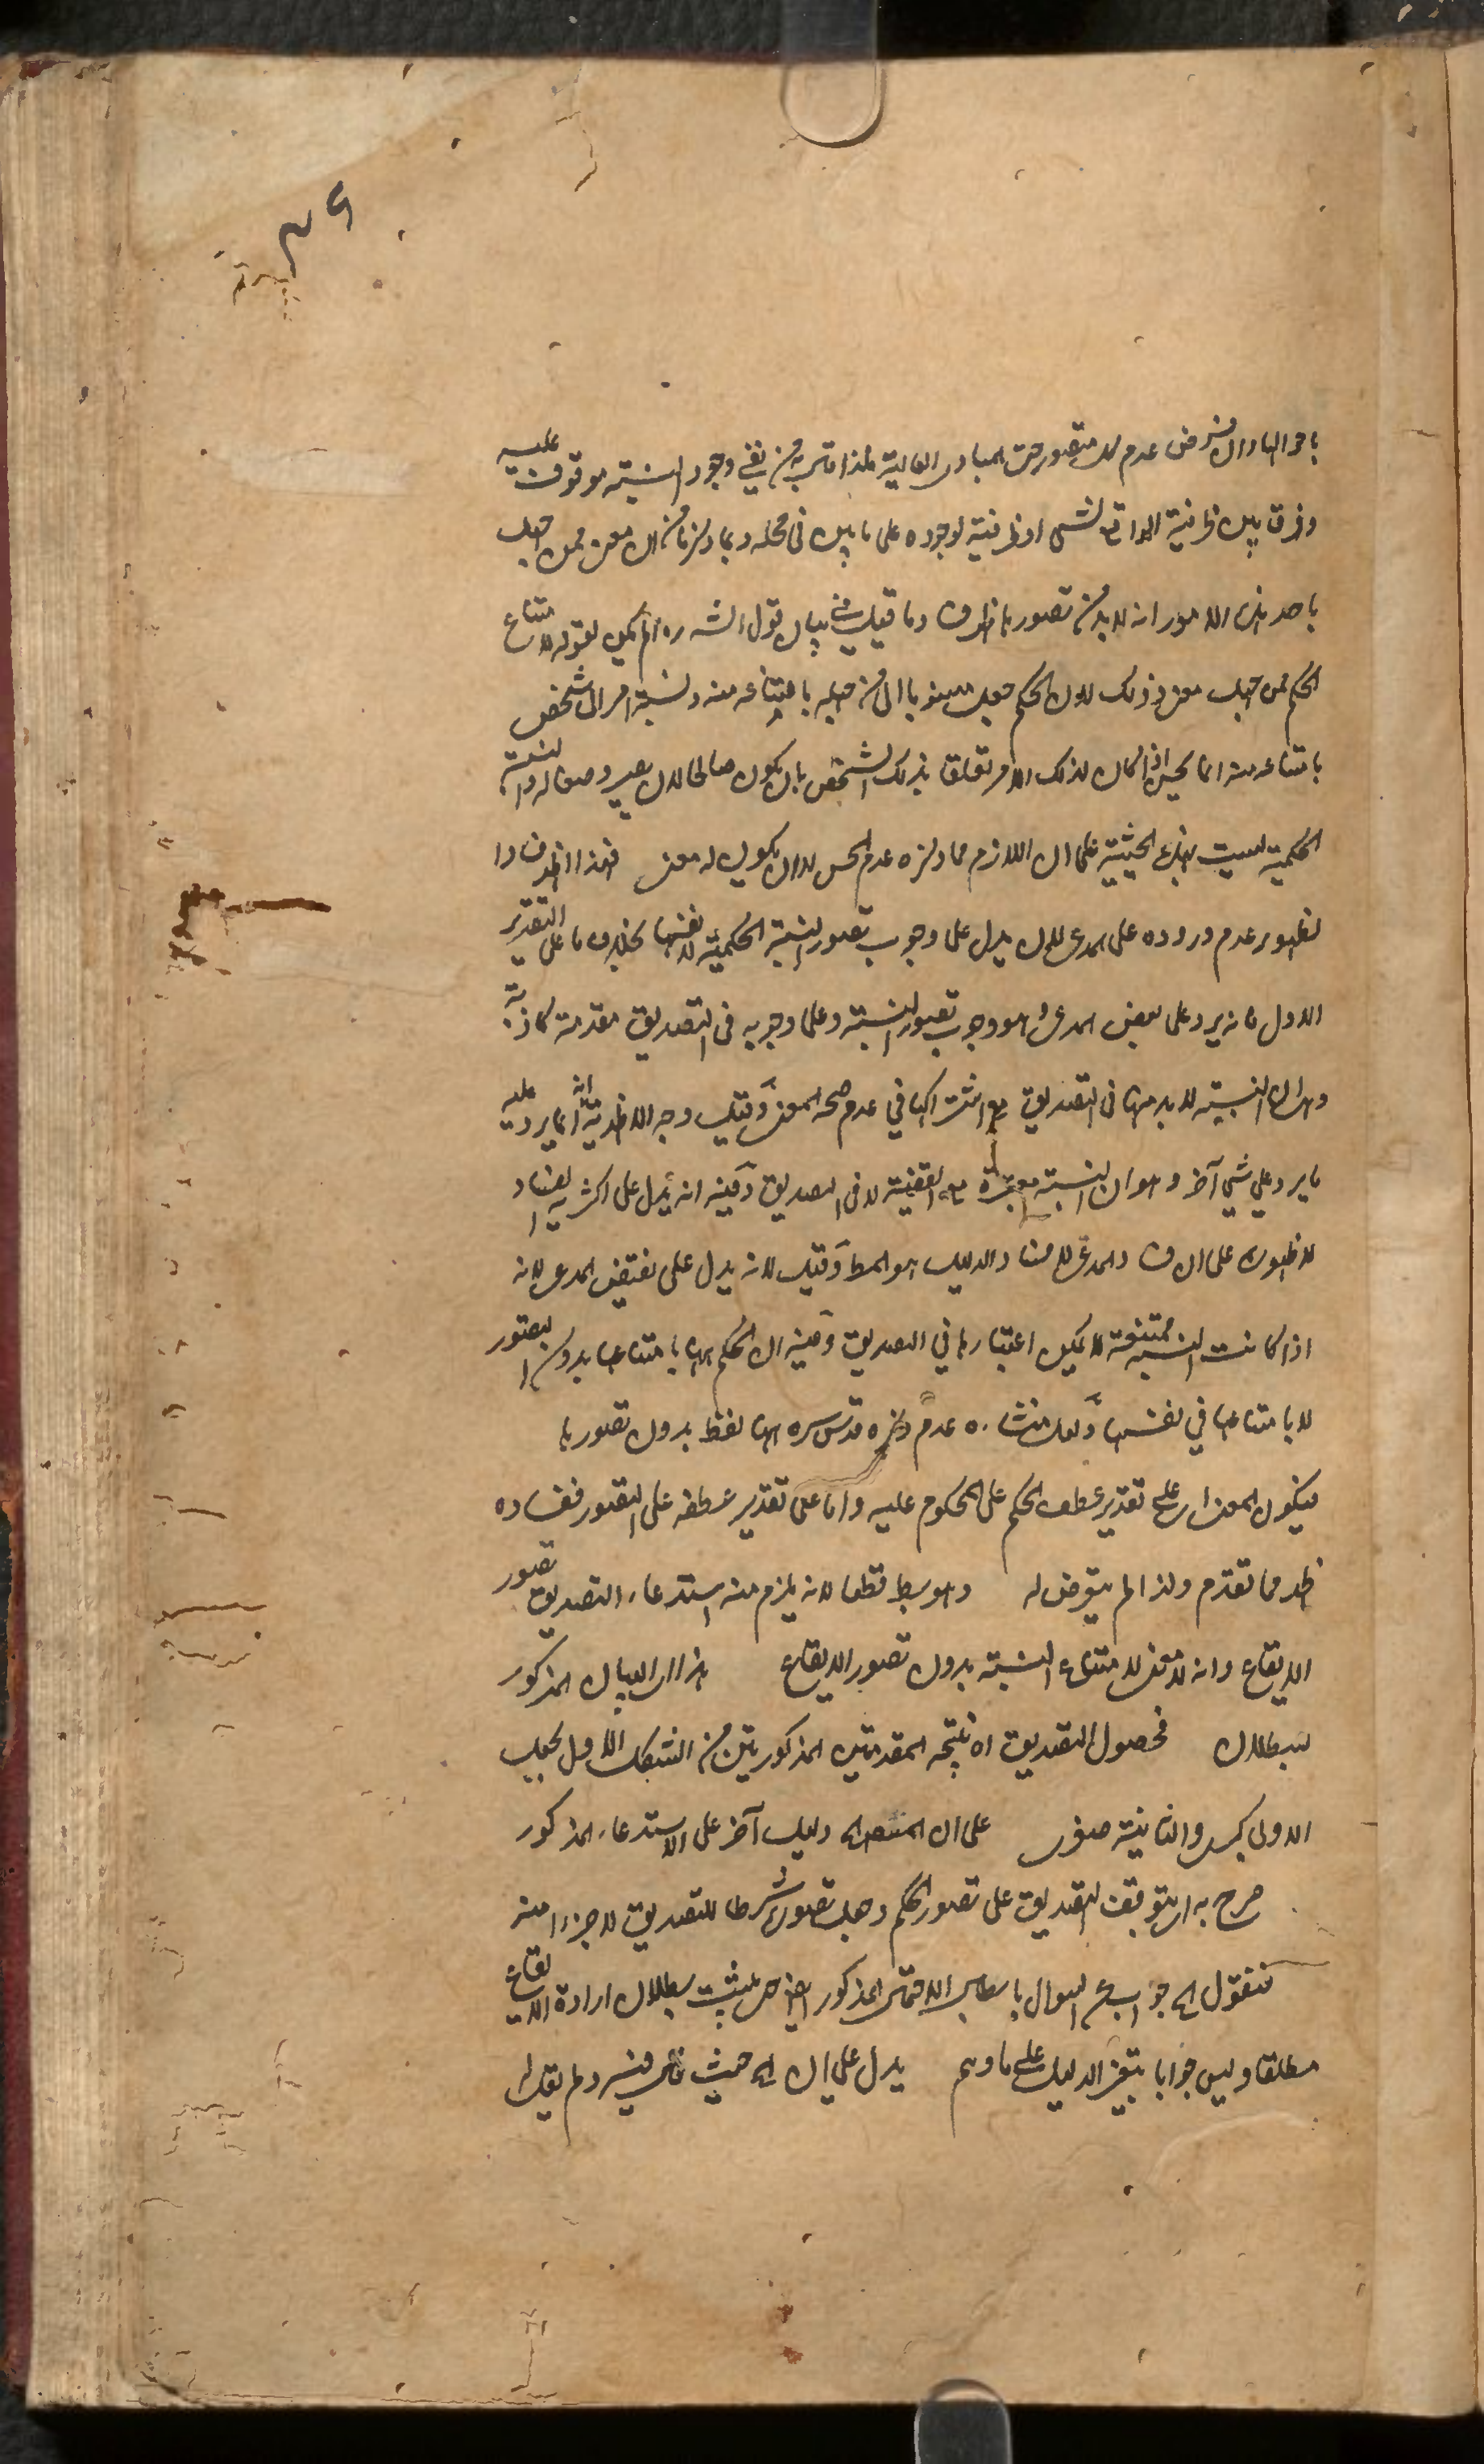 ٤٩
عدم تصور حتى المبادى العالية من نفي وجود النسبة موقوف عليه
وفرق بين ظرفية الواقع لشى او ظرفية لوجوده على ما بين فى محله وبما ذكرنا من ان معنى ممن جهل
باحد هذه الامور انه لا بد من تصور ما ظرف وما قيل في بيان قول الش ره لم يكن لقوله لامتناع
الحكم ممن جهل معنى وذلك لان الحكم جعل منسوبا الى من جهله بامتناعه منه ونسبة امر الى شخص
بامتناعه منه انما يحسن اذا كان لذلك الامر تعلق بذلك الشخص بان يكون صالحا لان يصير وصفا له والنسبة
الحكمية ليست بهذه الحيثية على ان اللازم مما ذكره عدم الحسن لا ان يكون له معنى فهذا اظهر فسادا
لظهور عدم وروده على المدعى لان يدل على وجوب تصور النسبة الحكمية لا نفسها بخلاف ما على التقدير
الاول فانه يرد على بعض المدعى وهو وجوب تصور النسبة وعلى وجوبه فى التصديق مقدمة كاذبة
وهى ان النسبة لا بد منها فى التصديق مع اشتراكهما في عدم صحة المعنى وقيل وجه الاظهرية انه انما يرد عليه
ما يرد على شي آخر وهو ان النسبة معتبرة في القضية لا فى التصديق وفيه انه يدل على اكثرية الفساد
لا اظهريته على ان فساد المدعى لا فساد الدليل هو المط وقيل لانه يدل على نقيض المدعى لانه
اذا كانت النسبة ممتنعة لا يمكن اعتبارها في التصديق وفيه ان الحكم بها بامتناعها بدون التصور
لا بامتناعها في نفسها ولعل منشاءه عدم ذكره قدس سره ههنا لفظ بدون تصورها
فيكون المعنى اى على تقدير عطف الحكم على المحكوم عليه واما على تقدير عطفه على التصور ففساده
ظهر مما تقدم ولذا لم يتعرض له وهو بط قطعا لانه يلزم منه استدعاء التصديق تصور
الايقاع وانه لا معنى لامتناع النسبة بدون تصور الايقاع هذا اى البيان المذكور
ببطلان فحصول التصديق اه نتيجه المقدمتين المذكورتين من الشكل الاول بجعل
الاولى كبرى والثانية صغرى على ان المتصل دليل آخر على الاستدعاء المذكور
صرح به اى بتوقف التصديق على تصور الحكم وجعل تصوره شرطا للتصديق لا جزءا منه
فنقول اى جواب عن السوال بابطال الاحتمال المذكور ليثبت بطلان ارادة الايقاع
مطلقا وليس جوابا بتغير الدليل على ما وهم يدل على ان اى حيث قال فيه ولم يقل